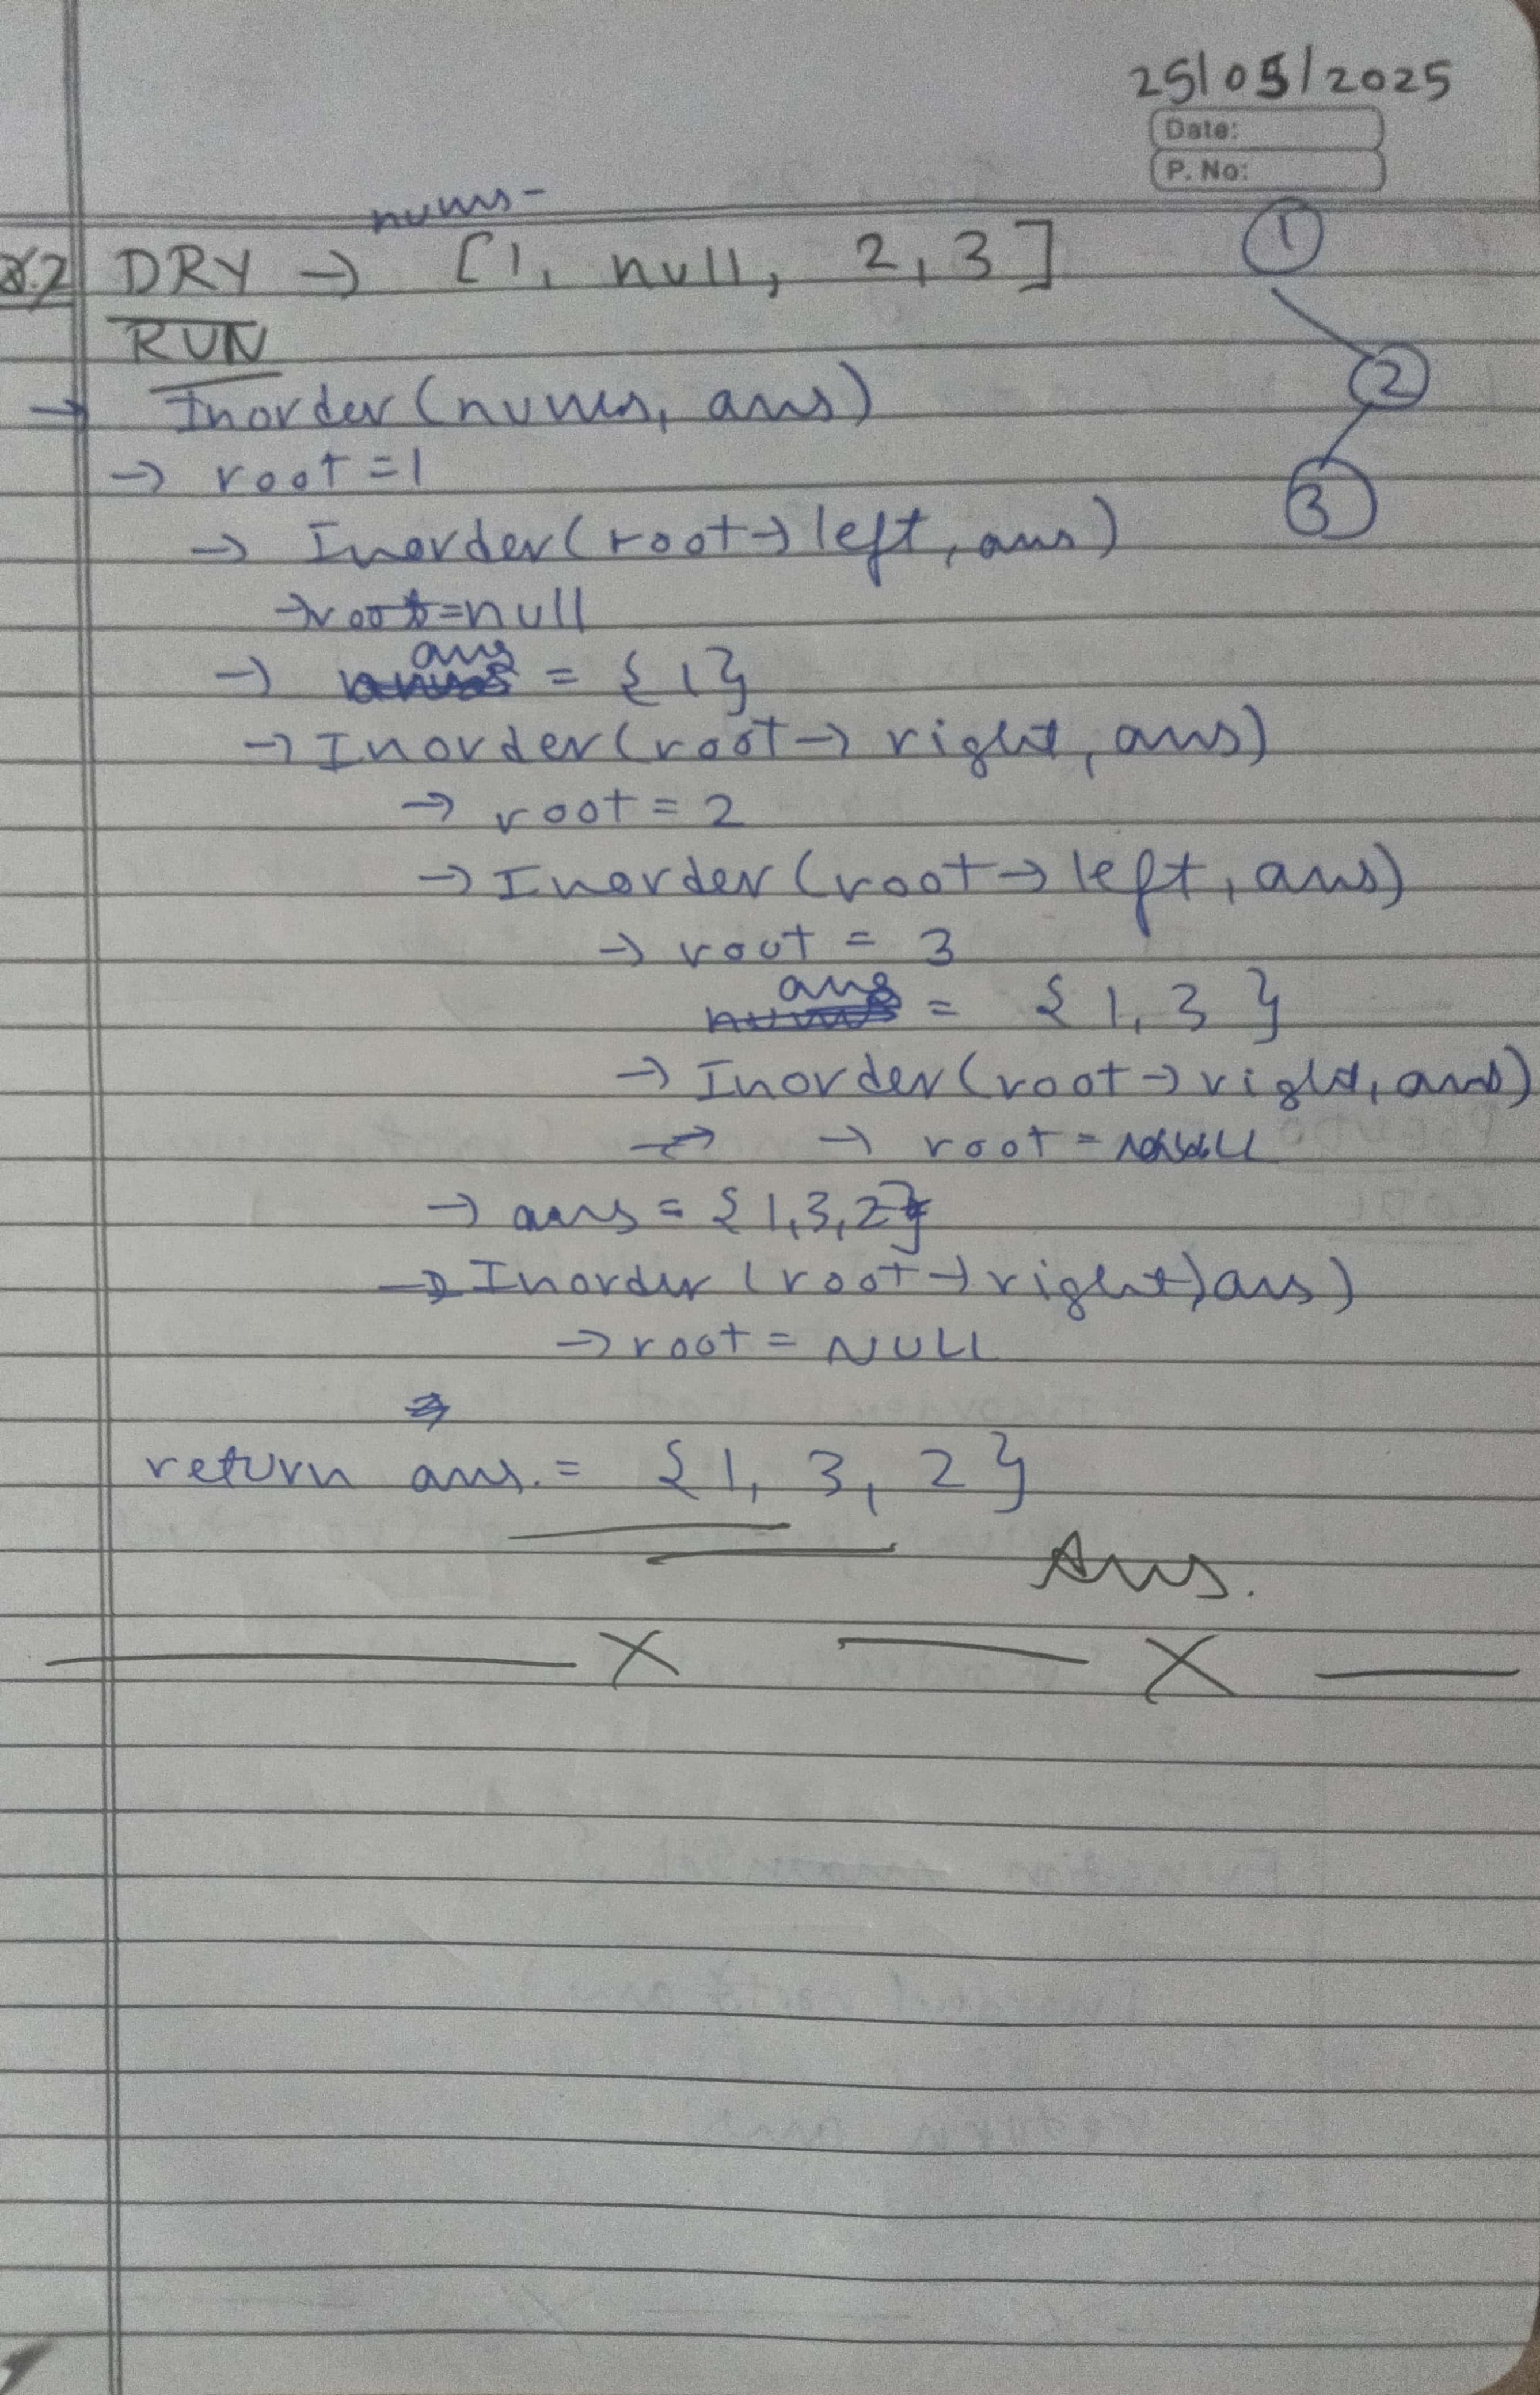 25/05/2025
Date:
P. No:
nums-
Q.2 DRY → [1, null, 2, 3]
RUN
1
2
3
→ Inorder(nums, ans)
→ root=1
→ Inorder(root→left, ans)
→root=null
→ ans = {1}
→ Inorder(root→ right, ans)
→ root = 2
→ Inorder(root→ left, ans)
→ root = 3
ans = {1, 3}
→ Inorder(root→right, ans)
→ root = NULL
→ ans = {1,3,2}
→ Inorder(root→right, ans)
→ root = NULL
return ans. = {1, 3, 2}
Ans.